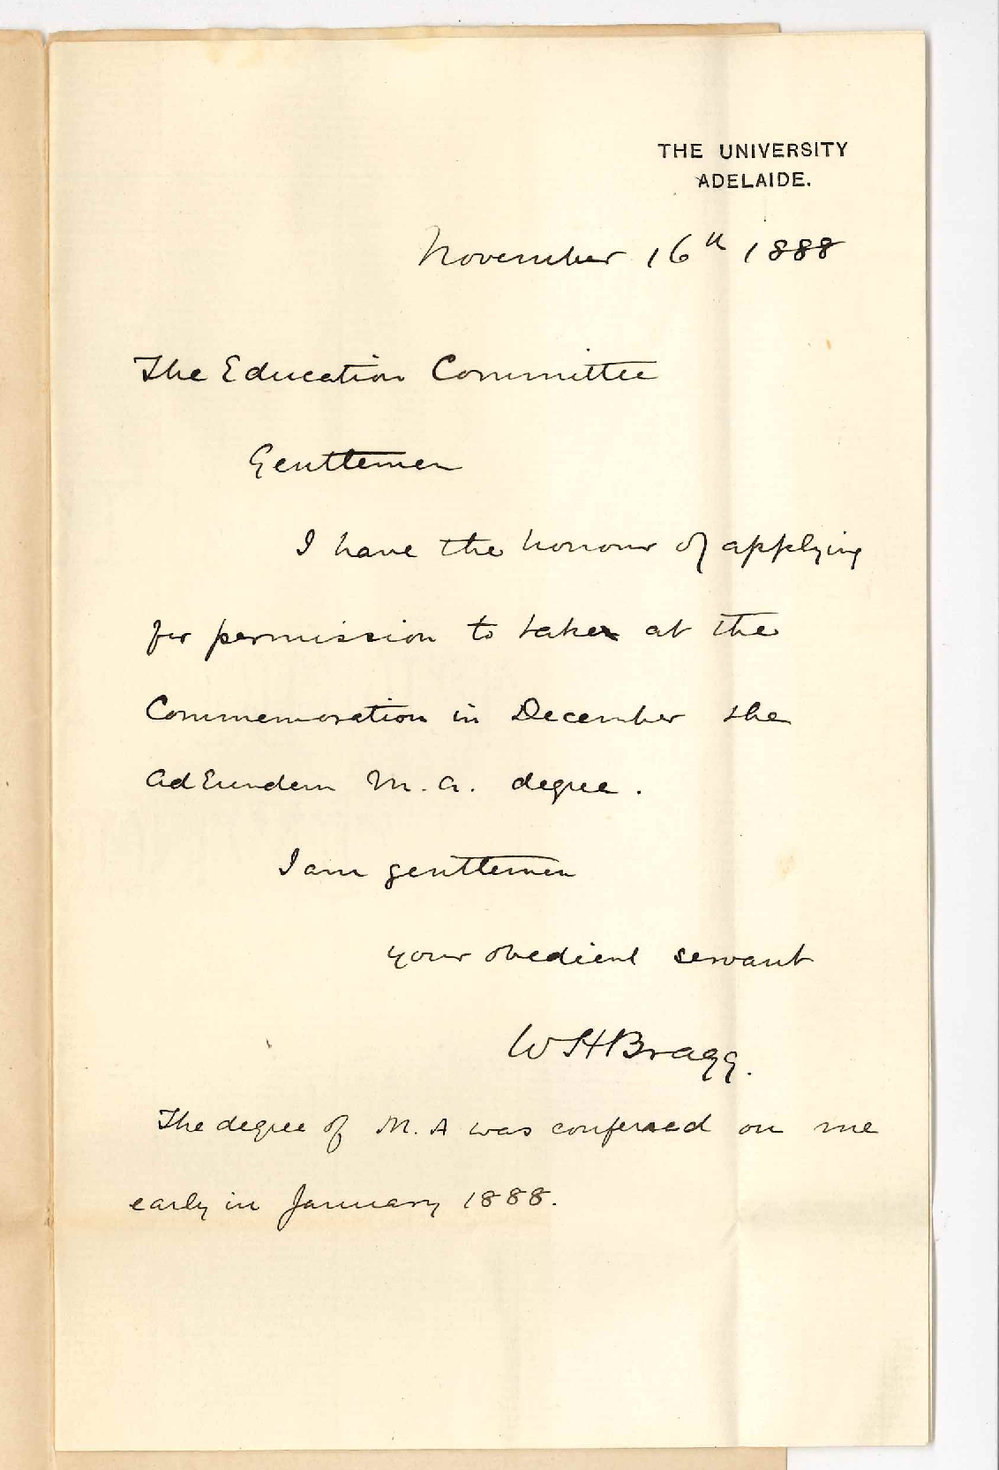 THE UNIVERSITY
ADELAIDE.
November 16th 1888
The Education Committee
Gentlemen
I have the honour of applying
for permission to take at the
Commemoration in December the
Ad Eundem M.A. degree.
I am gentlemen
your obedient servant
W H Bragg.
The degree of M.A was conferred on me
early in January 1888.